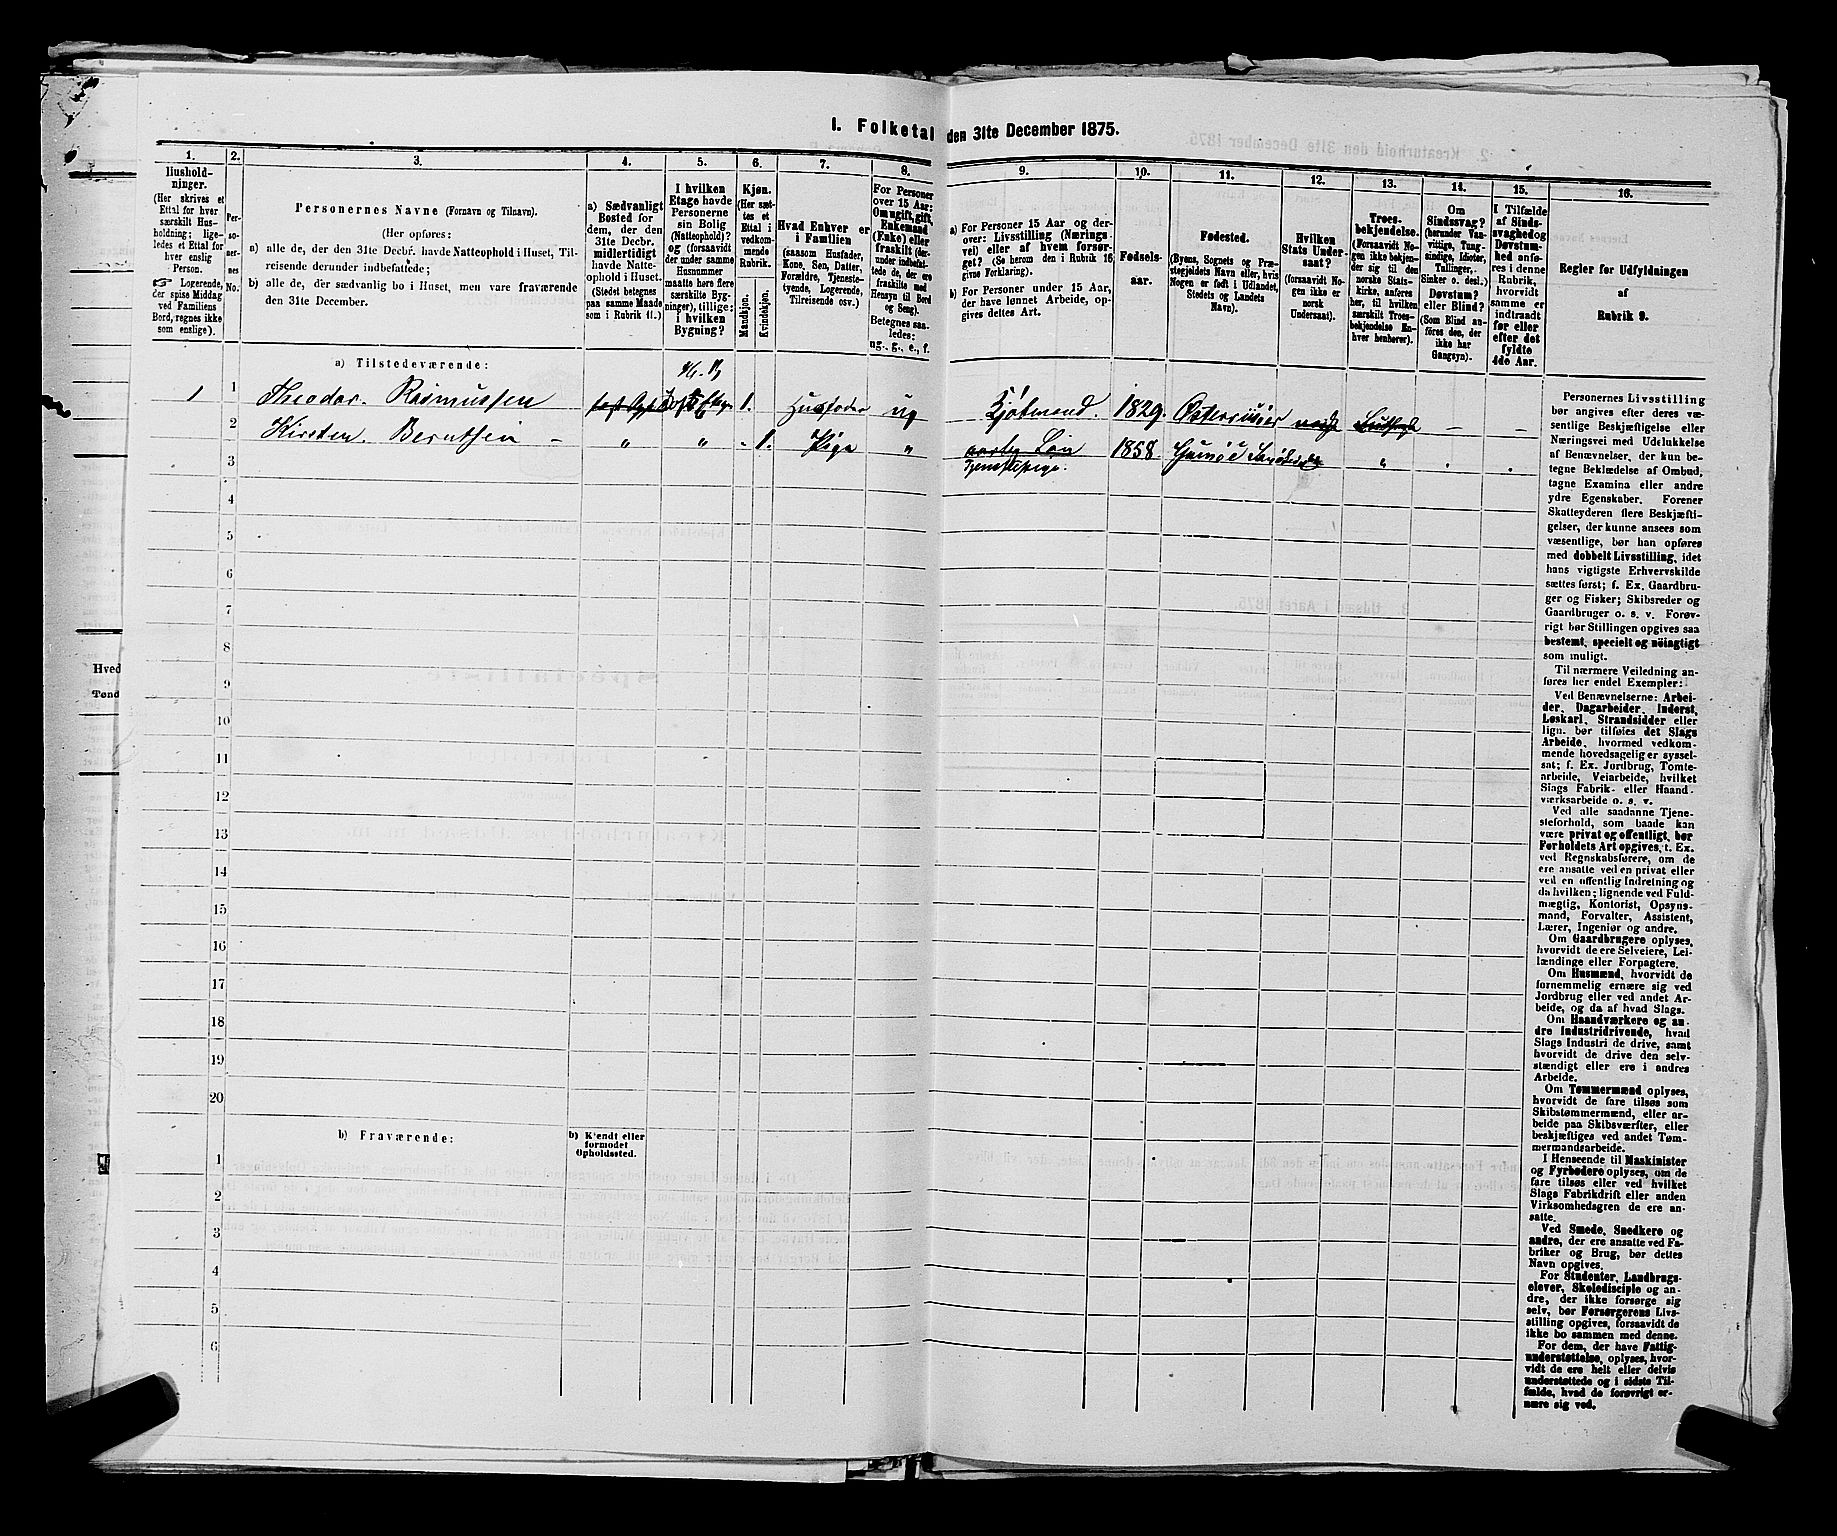 1. Folketal den 31te December 1875.
1. 2. 3. 4. 5. 6. 7. 8. 9. 10. 11. 12. 13. 14. 15. 16.
Hushold-
ninger.
(Her skrives et
Ettal for hver
særskilt Hus-
holdning; lige-
ledes et Ettal for
hver enslig
Person.
☞ Logerende,
der spise Middag
ved Familiens
Bord, regnes ikke
som enslige).
Per-
so-
ner-
nes
No.
Personernes Navne (Fornavn og Tilnavn).
(Her opføres:
a) alle de, der den 31te Decbr. havde Natteophold i Huset, Til-
reisende derunder indbefattede;
b) alle de, der sædvanlig bo i Huset, men vare fraværende
den 31te December.
a) Sædvanligt
Bosted for
dem, der den
31te Decbr.
midlertidigt
havde Natte-
ophold i Huset.
(Stedet betegnes
paa samme Maade
som i Rubrik 11.)
I hvilken
Etage havde
Personerne
sin Bolig
(Natteophold)?
og (forsaavidt
der under samme
Husnummer
maatte høre flere
særskilte Byg-
ninger), tillige:
i hvilken
Bygning?
Kjøn.
(Her sæt-
tes et
Ettal i
vedkom-
mende
Rubrik.
Mandkjøn.
Kvindekjøn.
Hvad Enhver er
i Familien
(saasom Husfader,
Kone, Søn, Datter,
Forældre, Tjeneste-
tyende, Logerende,
Tilreisende osv.)
For Personer
over 15 Aar:
Om ugift, gift,
Enkemand
(Enke) eller
fraskilt (der-
under indbefat-
tede de, der ere
fraskilte med
Hensyn til Bord
og Seng).
Betegnes saa-
ledes:
ug., g., e., f.
a) For Personer 15 Aar og der-
over: Livsstilling (Nærings-
vei) eller af hvem forsør-
get? (Se herom den i Rubrik 16
givne Forklaring).
b) For Personer under 15 Aar,
der have lønnet Arbeide, op-
gives dettes Art.
Fødsels-
aar.
Fødested.
(Byens, Sognets og Præ-
stegjeldets Navn eller, hvis
Nogen er født i Udlandet,
Stedets og Landets
Navn).
Hvilken
Stats Under-
saat?
(forsaavidt No-
gen ikke er
norsk
Undersaat).
Troes-
bekjendelse.
(Forsaavidt No-
gen ikke bekjen-
der sig til den
norske Stats-
kirke, anføres
her, til hvilken
særskilt Troes-
bekjendelse En-
hver henhører).
Om
Sindssvag?
(herunder Van-
vittige, Tung-
sindige, Idioter,
Tullinger,
Sinker o. desl.)
Døvstum?
eller Blind?
(Som Blind an-
føres den, der
ikke har
Gangsyn).
I Tilfælde
af Sinds-
svaghed og
Døvstum-
hed anfø-
res i denne
Rubrik,
hvorvidt
samme er
indtraadt
før eller
efter det
fyldte
4de Aar.
Regler for Udfyldningen
af
Rubrik 9.
a) Tilstedeværende:
1 1 Theodor Rasmussen 1. Husfader ug Kjøbmand. 1829. Østerrisøer norsk Luthersk — —
2 Kirsten Berntsen — „ „ „ 1. Pige „ aarlig Løn 1858. „
Tjenestepige.
3
4
5
6
7
8
9
10
11
12
13
14
15
16
17
18
19
20
b) Fraværende:
b) Kjendt eller
formodet
Opholdssted.
1
2
3
4
5
6
Personernes Livsstilling
bør angives efter deres væ-
sentlige Beskjæftigelse eller
Næringsvei med Udelukkelse
af Benævnelser, der kun be-
tegne Beklædelse af Ombud,
tagne Examina eller andre
ydre Egenskaber. Forener
Skatteyderen flere Beskjæfti-
gelser, der kunne ansees som
væsentlige, bør han opføres
med dobbelt Livsstilling, idet
hans vigtigste Erhvervskilde
sættes først; f. Ex. Gaardbru-
ger og Fisker; Skibsreder og
Gaardbruger o. s. v. Forøv-
rigt bør Stillingen opgives saa
bestemt, specielt og nöiagtigt
som muligt.
Til nærmere Veiledning an-
føres her endel Exempler:
Ved Benævnelserne: Arbei-
der, Dagarbeider, Inderst,
Løskarl, Strandsidder eller
lign. bør tilføies det Slags
Arbeide, hvormed vedkom-
mende hovedsagelig er syssel-
sat; f. Ex. Jordbrug, Tomte-
arbeide, Veiarbeide, hvilket
Slags Fabrik- eller Haand-
værksarbeide o. s. v.
Ved alle saadanne Tjene-
steforhold, som baade kan
være privat og offentligt, bør
Forholdets Art opgives, t. Ex.
ved Regnskabsførere, om de
ere ansatte ved en privat eller
ved en offentlig Indretning og
da hvilken; lignende ved Fuld-
mægtig, Kontorist, Opsyns-
mand, Forvalter, Assistent,
Lærer, Ingeniør og andre.
Om Gaardbrugere oplyses,
hvorvidt de ere Selveiere, Lei-
lændinge eller Forpagtere.
Om Husmænd, hvorvidt de
fornemmelig ernære sig ved
Jordbrug eller ved andet Ar-
beide, og da af hvad Slags.
Om Haandværkere og an-
dre Industridrivende, hvad
Slags Industri de drive, samt
hvorvidt de drive den selv-
stændigt eller ere i andres
Arbeide.
Om Tømmermænd oplyses,
hvorvidt de fare tilsøs som
Skibstømmermænd, eller ar-
beide paa Skibsværfter, eller
beskjæftiges ved andet Tøm-
mermandarbeide.
I Henseende til Maskinister
og Fyrbødere oplyses, om de
fare tilsøs eller ved hvilket
Slags Fabrikdrift eller anden
Virksomhedsgren de ere an-
satte.
Ved Smede, Snedkere og
andre, der ere ansatte ved Fa-
briker og Brug, bør dettes
Navn opgives.
For Studenter, Landbrugs-
elever, Skoledisciple og an-
dre, der ikke forsørge sig
selv, bør Forsørgerens Livs-
stilling opgives, forsaavidt de
ikke bo sammen med denne.
For dem, der have Fattig-
understøttelse, oplyses, hvor-
vidt de ere helt eller delvis
understøttede og i sidste Til-
fælde, hvad de forøvrigt er-
nære sig ved.
Hved
Tønd